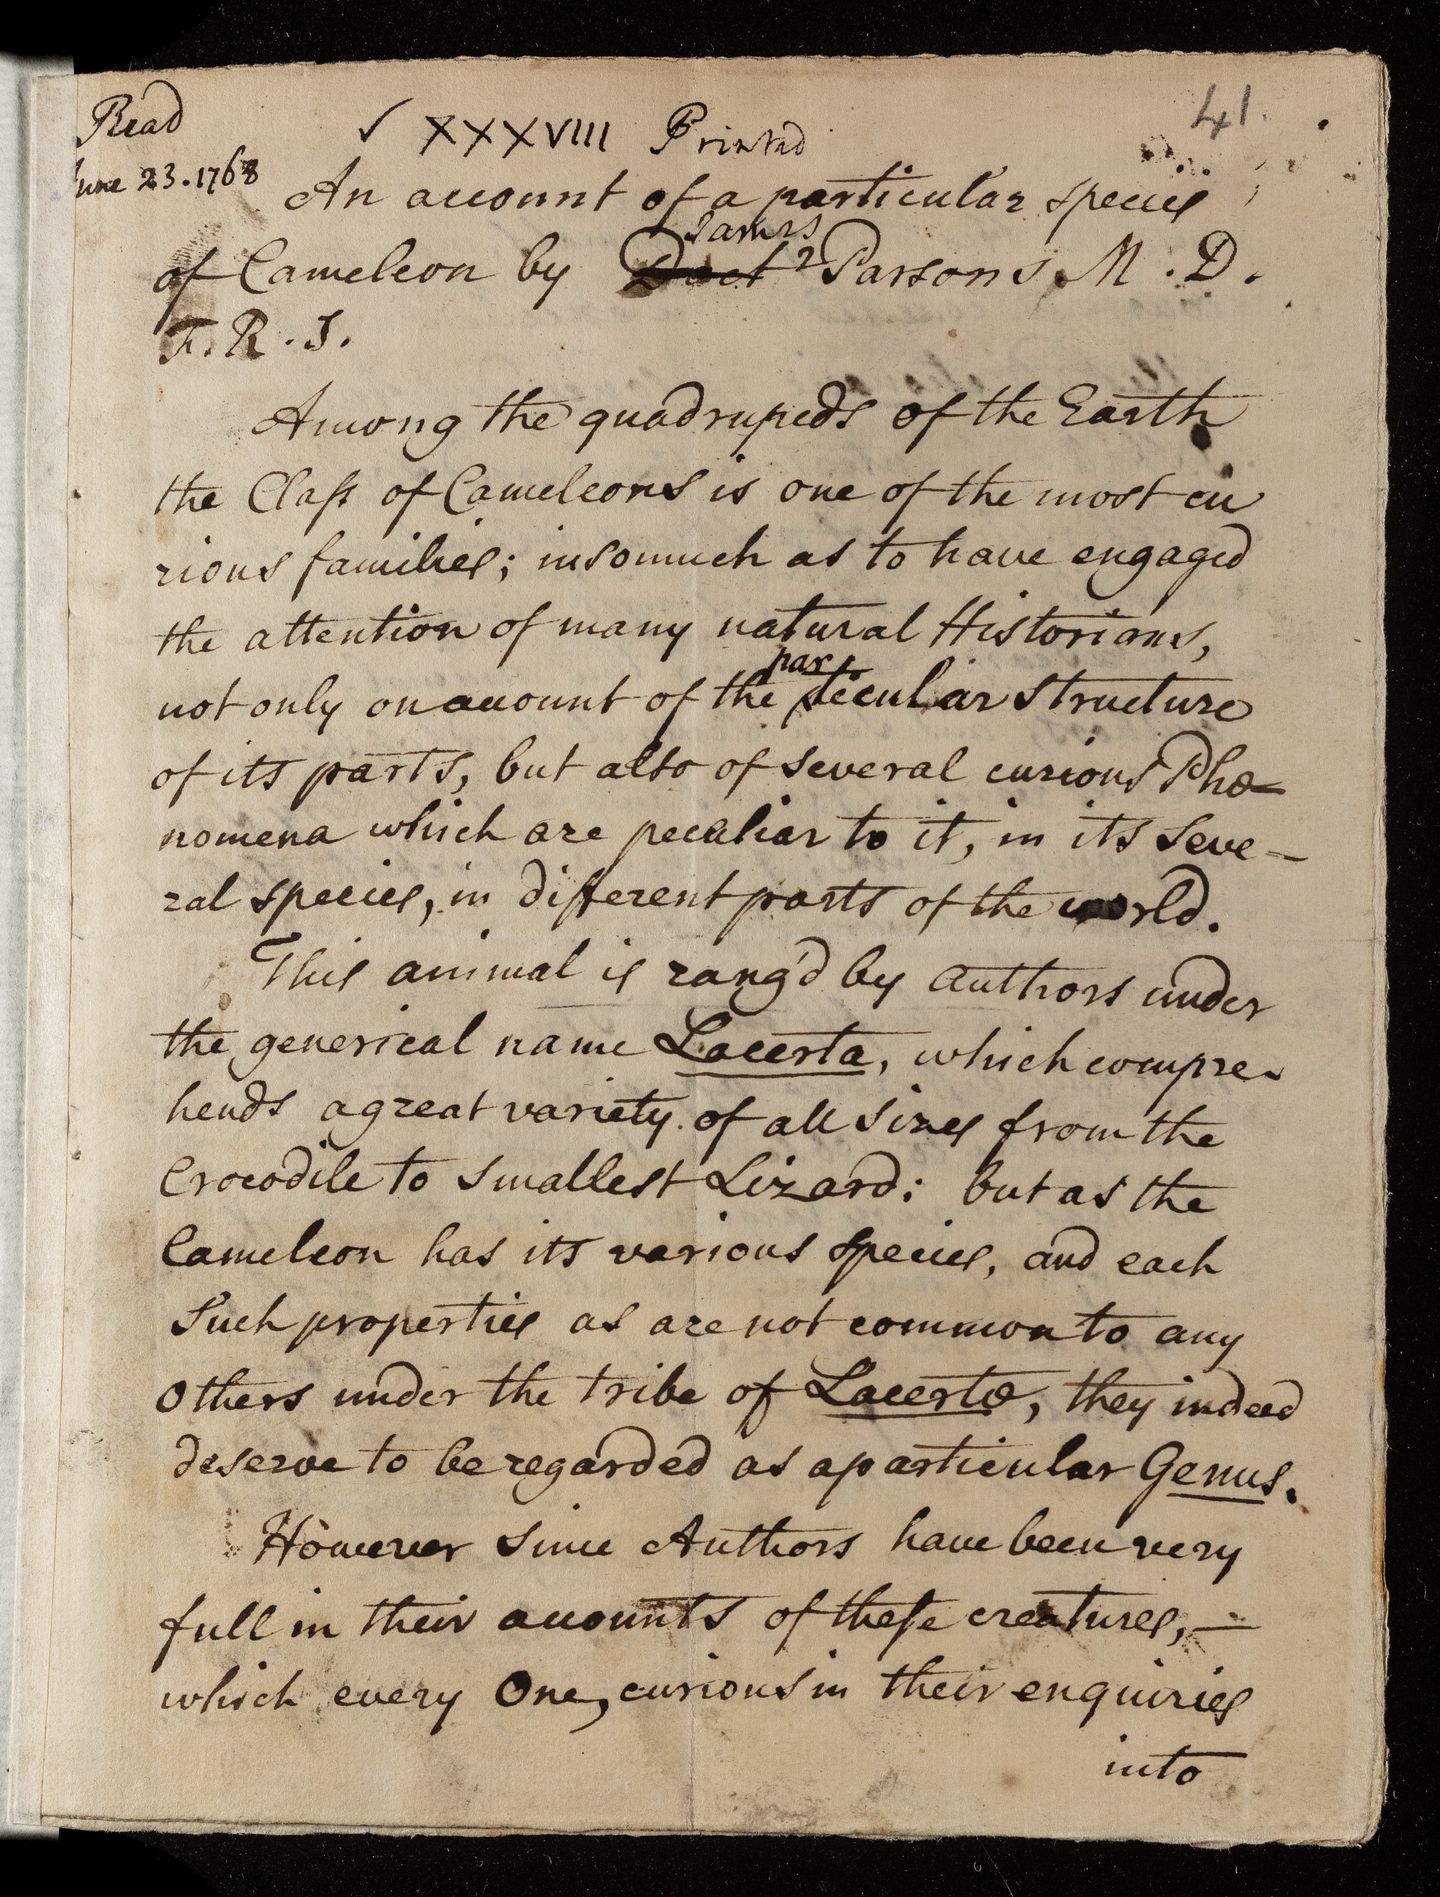 41.
Read
June 23. 1768
✓ XXXVIII Printed
An account of a particular species
James
of Cameleon by Doctr Parsons M. D.
F. R. S.
Among the quadrupeds of the Earth
the Class of Cameleons is one of the most cu
rious families; insomuch as to have engaged
the attention of many natural Historians,
par
not only on account of the ticular structure
of its parts, but also of several curious Phœ-
nomena which are peculiar to it, in its seve-
ral species, in different parts of the world.
This animal is rang'd by Authors under
the generical name Lacerta, which compre-
hends a great variety of all sizes from the
Crocodile to smallest Lizard: but as the
Cameleon has its various species, and each
such properties as are not common to any
others under the tribe of Lacertæ, they indeed
deserve to be regarded as a particular Genus.
However since Authors have been very
full in their accounts of these creatures, —
which every One, curious in their enquiries
into